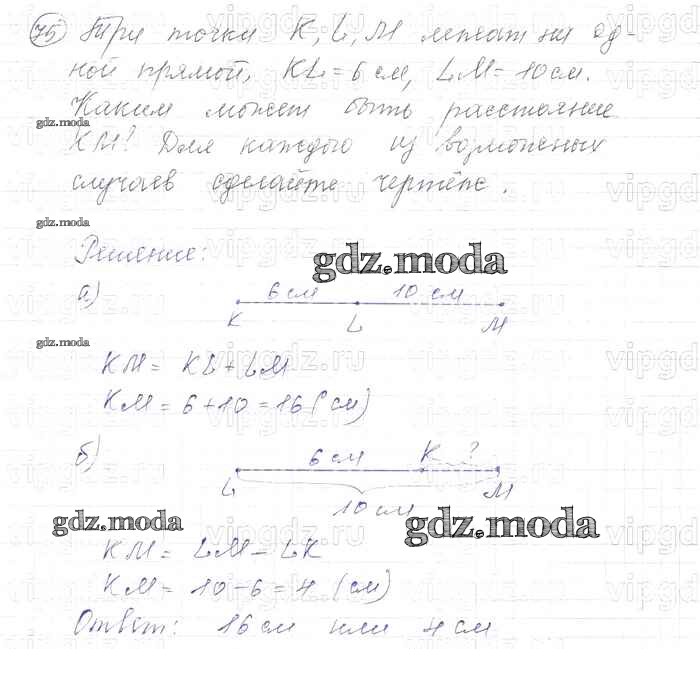 75 Три точки K, L, M лежат на од-
ной прямой, KL = 6 см, LM = 10 см.
Каким может быть расстояние
gdz.moda
KM? Для каждого из возможных
случаев сделайте чертёж.
gdz.moda
Решение:
gdz.moda
а) 6 см 10 см
K L M
gdz.moda
KM = KL + LM
KM = 6 + 10 = 16 (см)
б) 6 см K ?
L M
10 см
gdz.moda
gdz.moda
KM = LM - LK
KM = 10 - 6 = 4 (см)
Ответ: 16 см или 4 см
vipgdz.ru